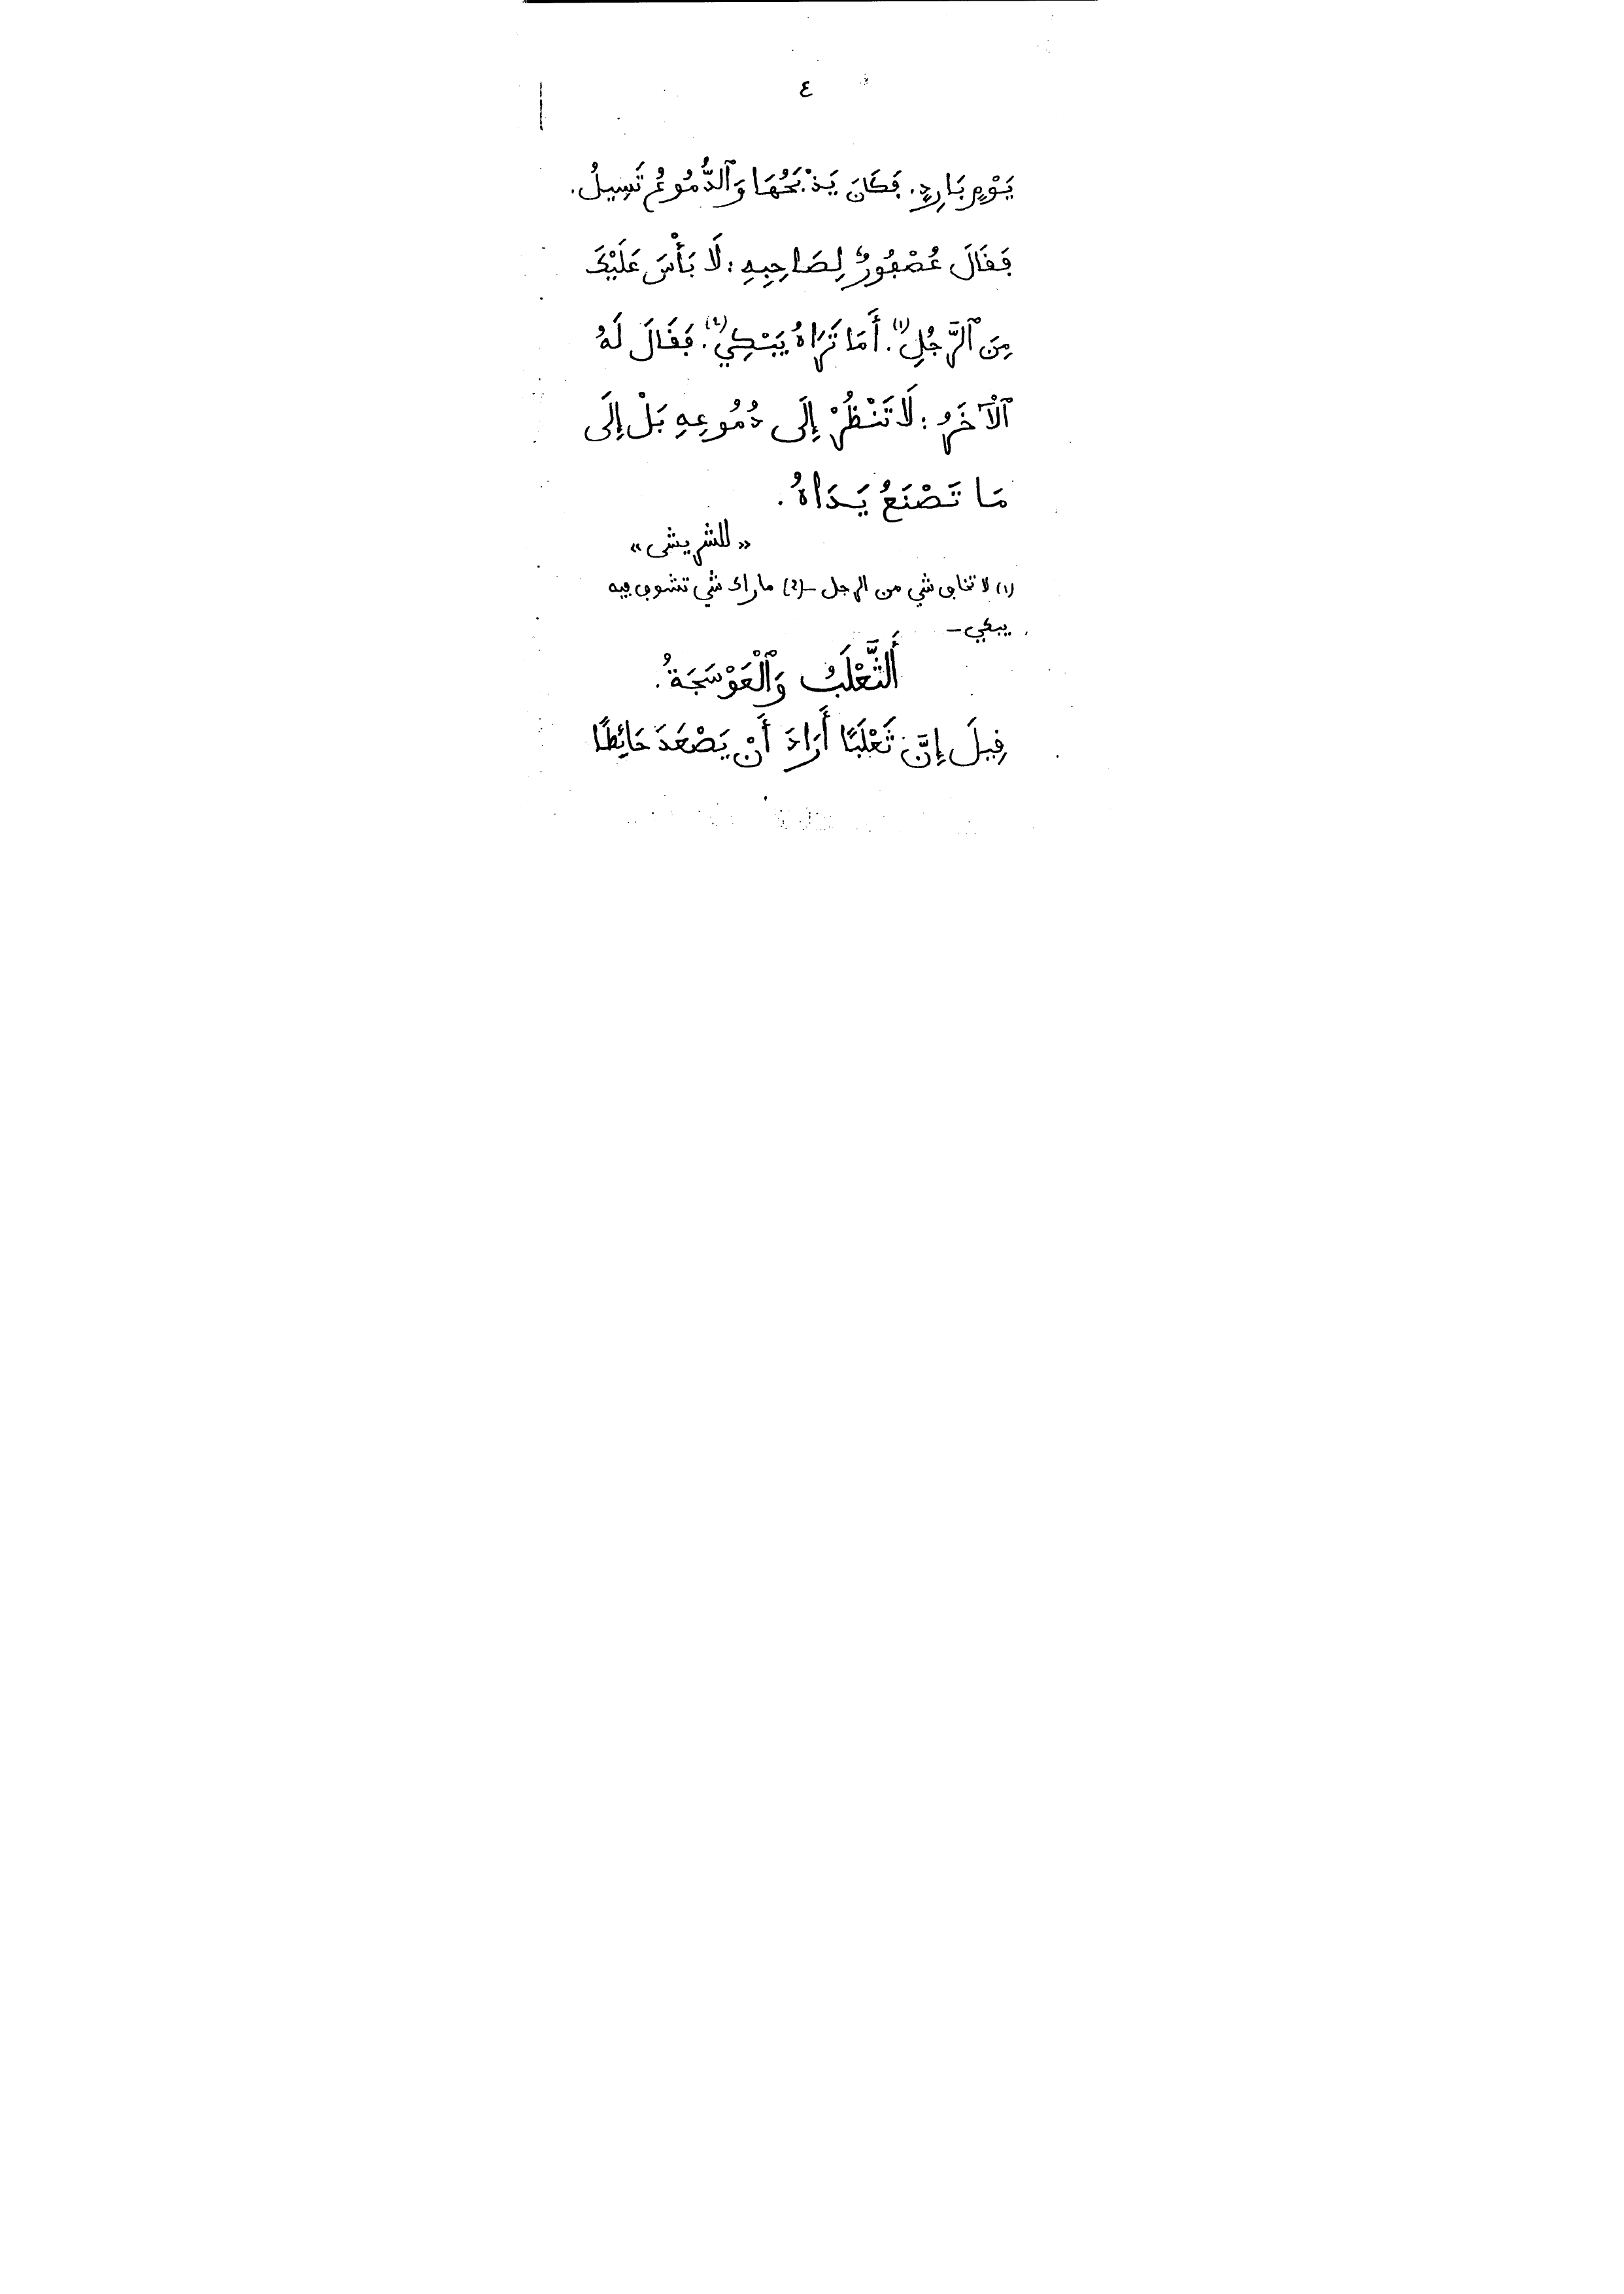 ٤
يَوْمٍ بَارِدٍ. ڢَكَانَ يَذْبَحُهَا وَٱلدُّمُوعُ تَسِيلُ.
ڢَڧَالَ عُصْڢُورٌ لِصَاحِبِهِ : لَا بَأْسَ عَلَيْكَ
مِنَ ٱلرَّجُلِ(١). أَمَا تَرَاهُ يَبْكِي(٢). ڢَڧَالَ لَهُ
ٱلْآخَرُ : لَا تَنْظُرْ إِلَى دُمُوعِهِ بَلْ إِلَى
مَا تَصْنَعُ يَدَاهُ.
«للشريشى»
(١) لا تخاڢ شي من الرجل –(2) ماراك شي تشوڢ ڢيه
يبكي –
أَلثَّعْلَبُ وَٱلْعَوْسَجَةُ.
ڧِيلَ إِنَّ ثَعْلَبًا أَرَادَ أَنْ يَصْعَدَ حَائِطًا